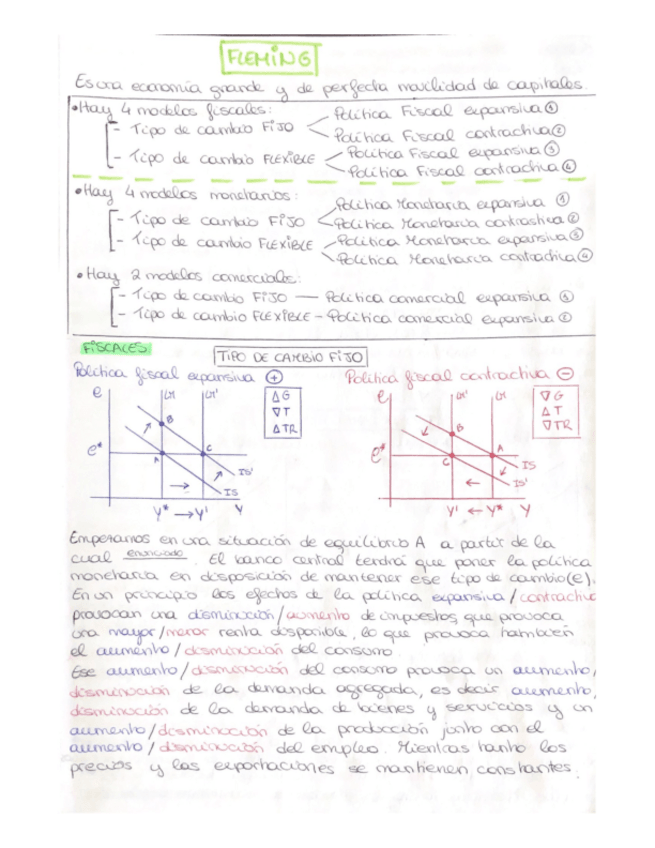 FLEMING
Es una economía grande y de perfecta movilidad de capitales.
• Hay 4 modelos fiscales:
- Tipo de cambio FIJO
Política Fiscal expansiva ①
Política Fiscal contractiva ②
- Tipo de cambio FLEXIBLE
Política Fiscal expansiva ③
Política Fiscal contractiva ④
• Hay 4 modelos monetarios:
- Tipo de cambio FIJO
Política Monetaria expansiva ①
Política Monetaria contractiva ②
- Tipo de cambio FLEXIBLE
Política Monetaria expansiva ③
Política Monetaria contractiva ④
• Hay 2 modelos comerciales:
- Tipo de cambio FIJO — Política comercial expansiva ①
- Tipo de cambio FLEXIBLE - Política comercial expansiva ②
FISCALES
TIPO DE CAMBIO FIJO
Política fiscal expansiva ⊕
e
LM
LM'
Δ G
∇ T
Δ TR
B
e*
A
C
IS'
IS
Y* → Y'
Y
Política fiscal contractiva ⊖
e
LM'
LM
∇ G
Δ T
∇ TR
B
e*
C
A
IS
IS'
Y' ← Y*
Y
Empezamos en una situación de equilibrio A a partir de la
cual enunciado. El banco central tendrá que poner la política
monetaria en disposición de mantener ese tipo de cambio (e).
En un principio los efectos de la política expansiva/contractiva
provocan una disminución/aumento de impuestos, que provoca
una mayor/menor renta disponible, lo que provoca también
el aumento/disminución del consumo
Ese aumento/disminución del consumo provoca un aumento/
disminución de la demanda agregada, es decir aumento/
disminución de la demanda de bienes y servicios y un
aumento/disminución de la producción junto con el
aumento/disminución del empleo. Mientras tanto los
precios y las exportaciones se mantienen constantes.